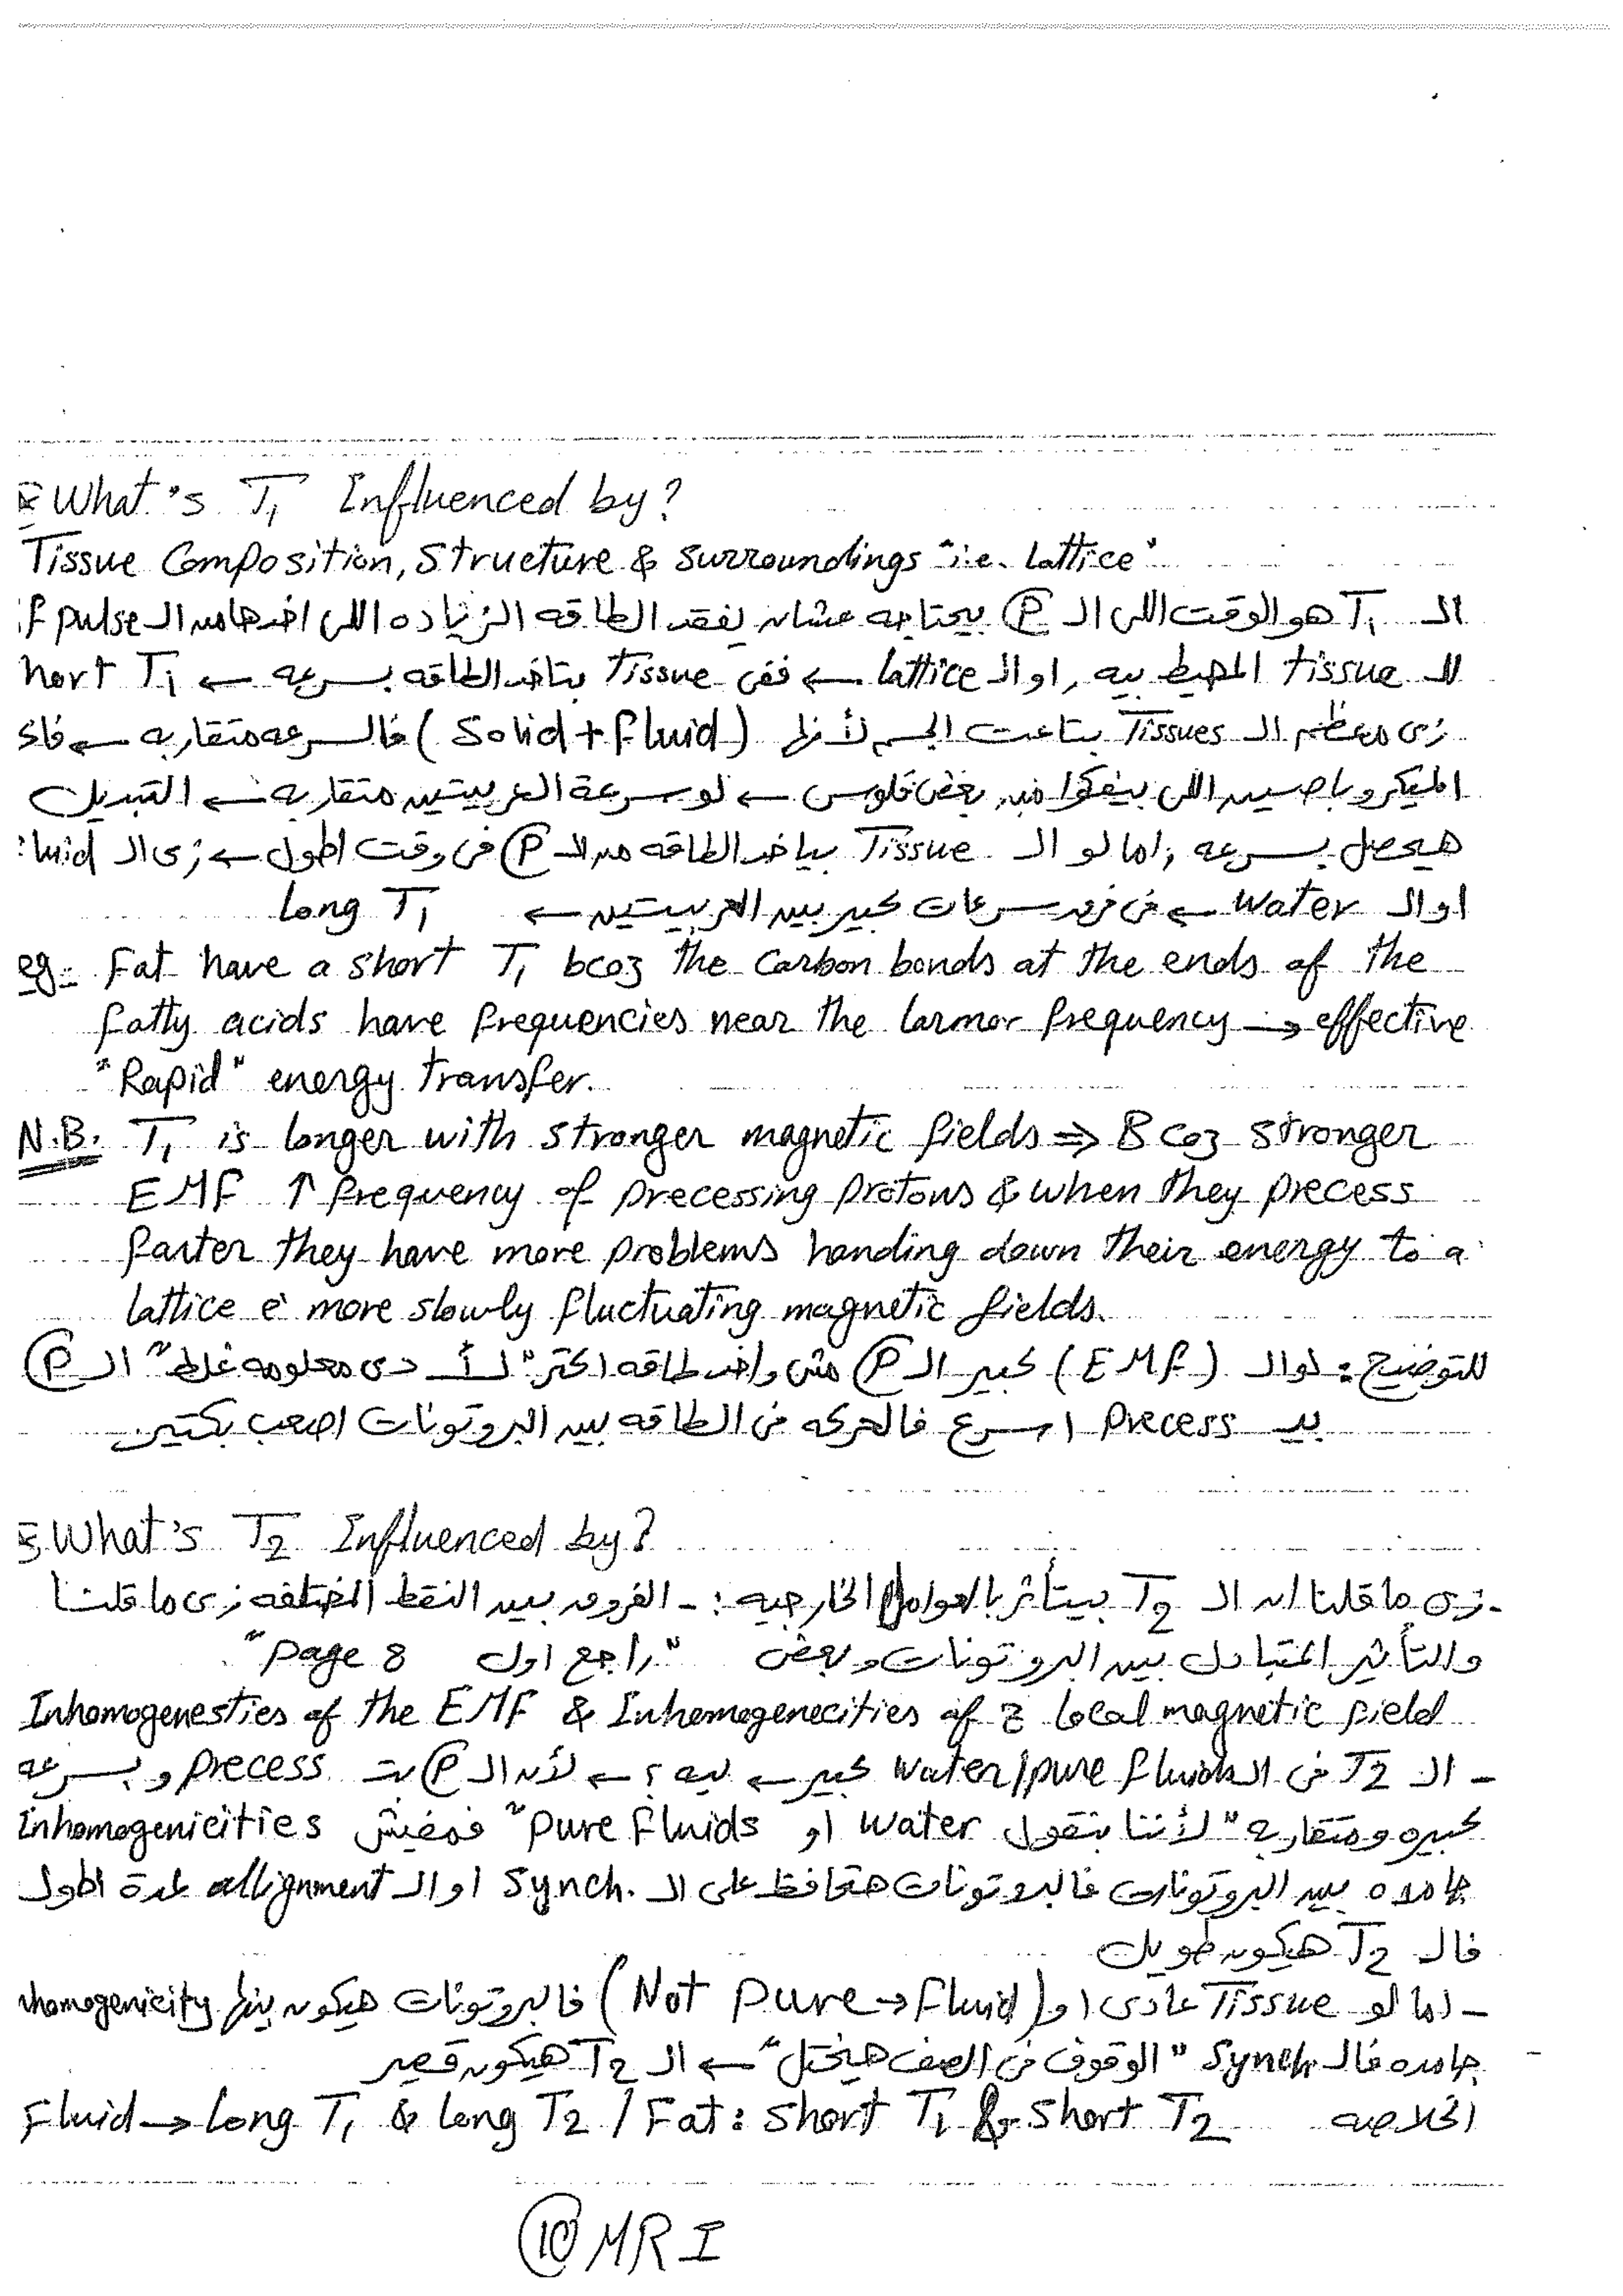 What's T1 Influenced by?
Tissue Composition, Structure & surroundings "i.e. Lattice"
الـ T1 هو الوقت اللى الـ P بيحتاجه عشان يفقد الطاقه الزياده اللى اخدها من الـ f pulse
للـ tissue المحيط بيه, او الـ lattice ← ففى Tissue بتاخد الطاقه بسرعه ← hort T1
زى معظم الـ Tissues بتاعت الجسم لأنها (Solid + fluid) فالسرعه متقاربه ← فاكر
الميكروباصين اللى بيفكوا من بعض فلوس ← لو سرعة العربيتين متقاربه ← التبديل
هيحصل بسرعه, اما لو الـ Tissue بياخد الطاقه من الـ P فى وقت اطول ← زى الـ luid
او الـ Water ← فى فرق سرعات كبير بين العربيتين ← Long T1
eg:- Fat have a short T1 bcoz the Carbon bonds at the ends of the
fatty acids have frequencies near the larmor frequency → effective
"Rapid" energy transfer.
N.B. T1 is longer with stronger magnetic fields ⇒ Bcoz stronger
EMF ↑ frequency of precessing protons & when they precess
faster they have more problems handing down their energy to a
lattice e more slowly fluctuating magnetic fields.
للتوضيح: لو الـ (EMF) كبير الـ P مش واخد طاقه اكتر "لأ دى معلومه غلط" الـ P
بيـ Precess اسرع فالحركه فى الطاقه بين البروتونات اصعب بكتير
What's T2 Influenced by?
- زى ما قلنا ان الـ T2 بيتأثر بالعوامل الخارجيه :- الفروق بين النقط المختلفه زى ما قلنا
والتأثير المتبادل بين البروتونات وبعض "راجع اول page 8"
Inhomogenesties of the EMF & Inhomogenecities of z Local magnetic field
- الـ T2 فى الـ Water/pure fluids كبير ← ليه ؟ ← لأن الـ P بتـ precess وبسرعه
كبيره ومتقاربه "لأننا بنقول Water او Pure fluids" فمفيش Inhomogenicities
جامده بين البروتونات فالبروتونات هتحافظ على الـ Synch. او الـ allignment لمدة اطول
فالـ T2 هيكون طويل
- اما لو Tissue عادى او (Not Pure → fluid) فالبروتونات هيكون بينها nhomogenicity
جامده فالـ Synch "الوقوف فى الصف هيختل" ← الـ T2 هيكون قصير
الخلاصه Fluid → Long T1 & Long T2 / Fat: short T1 & short T2
10 MRI